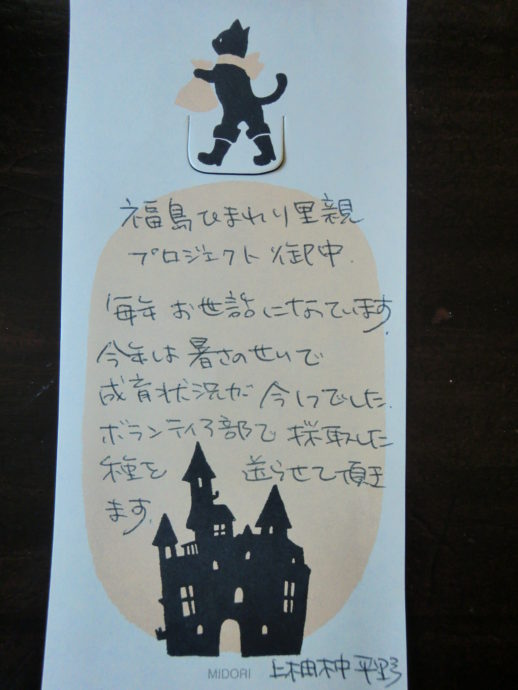 福島ひまわり里親
プロジェクト 御中.
毎年 お世話になっています.
今年は 暑さのせいで
成育状況が 今1つでした.
ボランティア部で 採取した
種を 送らせて頂き
ます.
MIDORI 上柚木中 平野